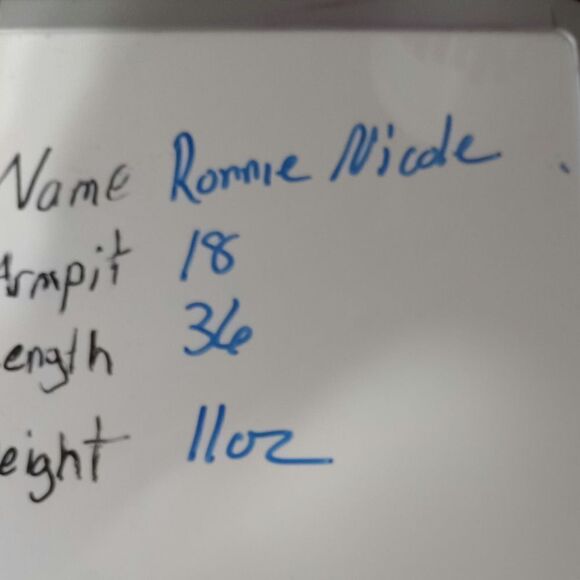 Name Ronnie Nicole
Armpit 18
ength 36
eight 11oz